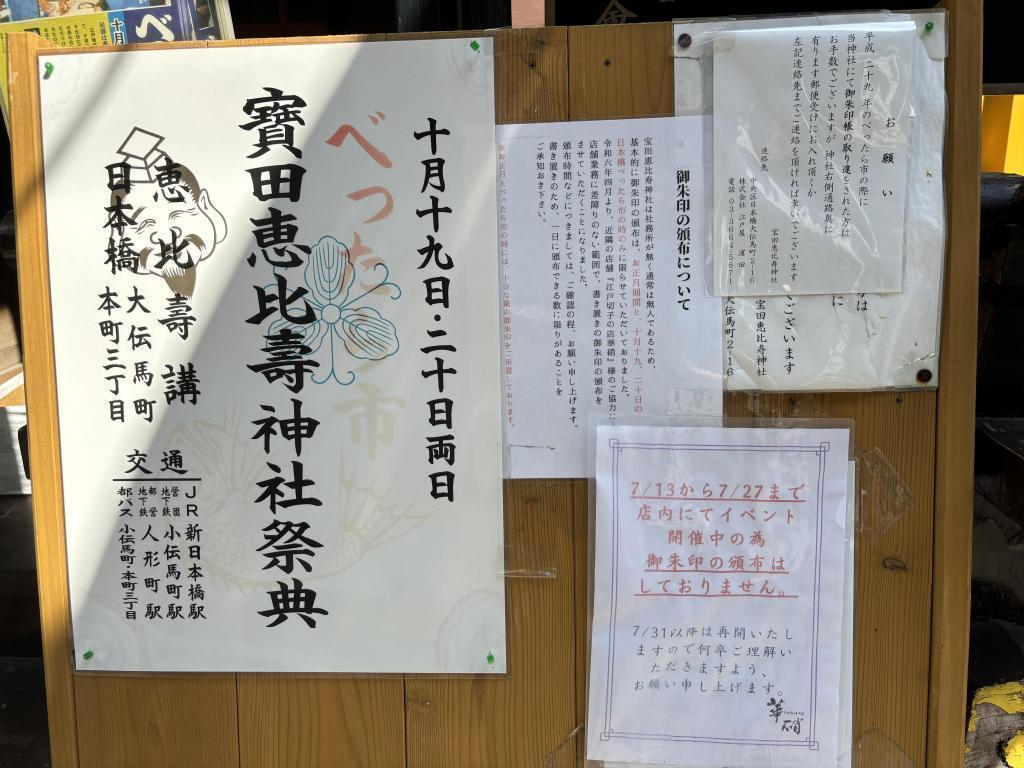 十月十九日・二十日両日
べったら市
寶田恵比壽神社祭典
恵比壽講
日本橋
大伝馬町
本町三丁目
交通
JR新日本橋駅
営団地下鉄小伝馬町駅
都営地下鉄人形町駅
都バス小伝馬町・本町三丁目
御朱印の頒布について
宝田恵比寿神社は社務所が無く通常は無人であるため、
基本的に御朱印の頒布は、お正月期間と、十月十九、二十日の
日本橋べったら市の時のみに限らせていただいておりました。
令和六年四月より、近隣の店舗『江戸切子の店華硝』様のご協力に
店舗業務に差障りのない範囲で、書き置きの御朱印の頒布を
させていただくことになりました。
頒布時間などにつきましては、ご確認の程、お願い申し上げます。
書き置きのため、一日に頒布できる数に限りがあることを
ご承知おき下さい。
※お正月とべったら市の時には、十分な量の御朱印をご用意しております。
お願い
平成二十九年のべったら市の際に
当神社にて御朱印帳の取り違をされた方は
お手数でございますが神社右側通路奥に
有ります郵便受けにお入れ頂くか
左記連絡先までご連絡を頂ければ幸いでございます
宝田恵比寿神社
連絡先
中央区日本橋大伝馬町2-16
株式会社江戸屋 濱田
電話03-3664-5671
ございます
宝田恵比寿神社
大伝馬町2-16
7/13から7/27まで
店内にてイベント
開催中の為
御朱印の頒布は
しておりません。
7/31以降は再開いたし
ますので何卒ご理解い
ただきますよう、
お願い申し上げます。
華硝